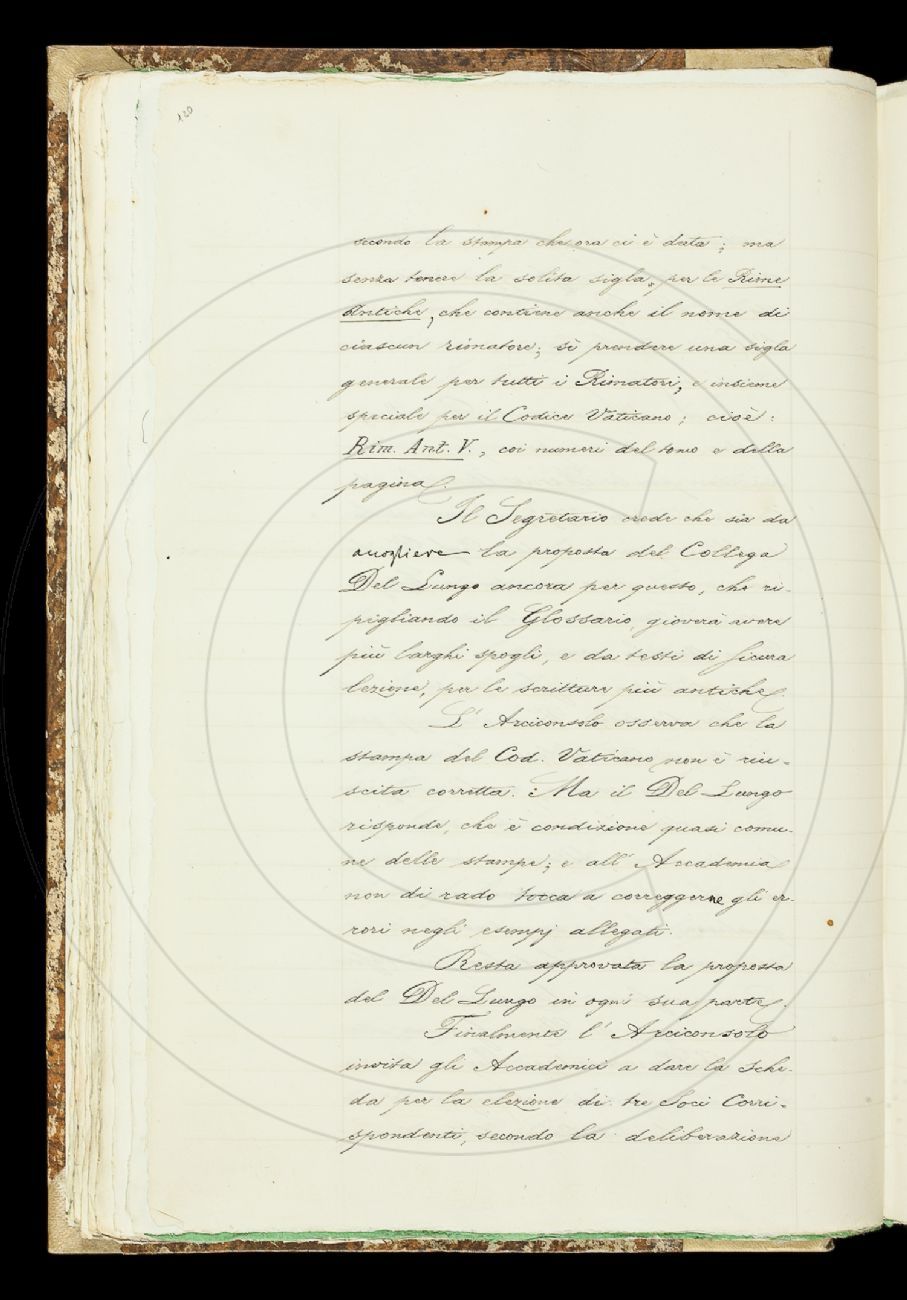 120
secondo la stampa che ora ci è data; ma
senza tenere la solita sigla, per le Rime
Antiche, che contiene anche il nome di
ciascun rimatore; sì prendere una sigla
generale per tutti i Rimatori, e insieme
speciale per il Codice Vaticano; cioè:
Rim. Ant. V., coi numeri del tomo e della
pagina.
Il Segretario crede che sia da
accogliere la proposta del Collega
Del Lungo ancora per questo, che ri-
pigliando il Glossario, gioverà avere
più larghi spogli, e da testi di sicura
lezione, per le scritture più antiche.
L'Arciconsolo osserva che la
stampa del Cod. Vaticano non è riu-
scita corretta. Ma il Del Lungo
risponde, che è condizione quasi comu-
ne delle stampe; e all'Accademia
non di rado tocca a correggerne gli er-
rori negli esempj allegati.
Resta approvata la proposta
del Del Lungo in ogni sua parte.
Finalmente l'Arciconsolo
invita gli Accademici a dare la sche-
da per la elezione di tre Soci Corri-
spondenti, secondo la deliberazione